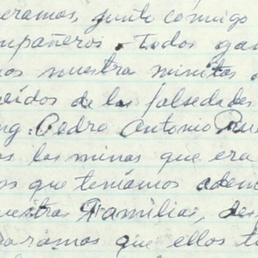 eramos, junto comigo
mpañeros. todos gan
os nuestra minitas
eídos de la falsedades
ng. Pedro Antonio Rue
as las minas que era
os que teníamos adem
uestras Familias, des
aramos que ellos t